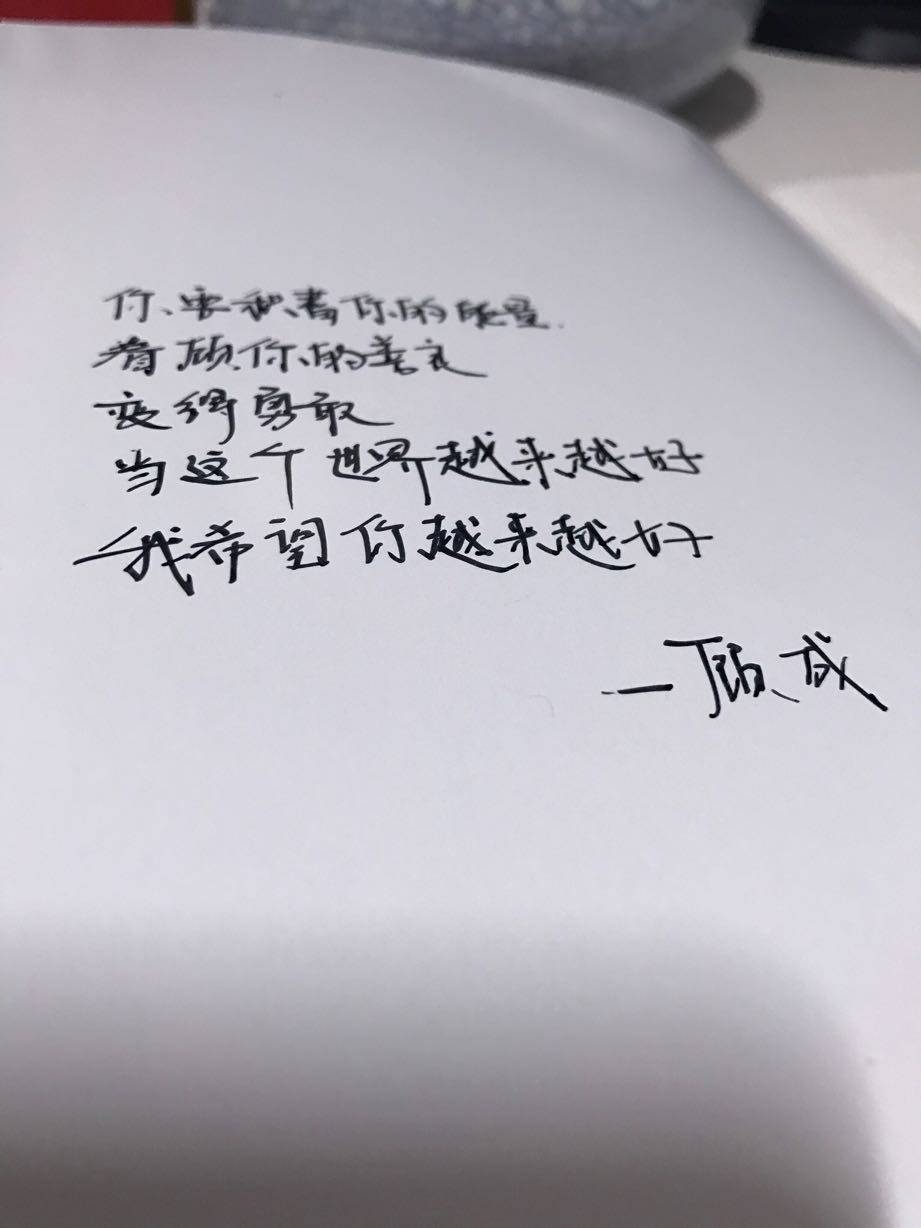 你要积蓄你的能量.
看顾你的善良
变得勇敢
当这个世界越来越好
我希望你越来越好
—顾城